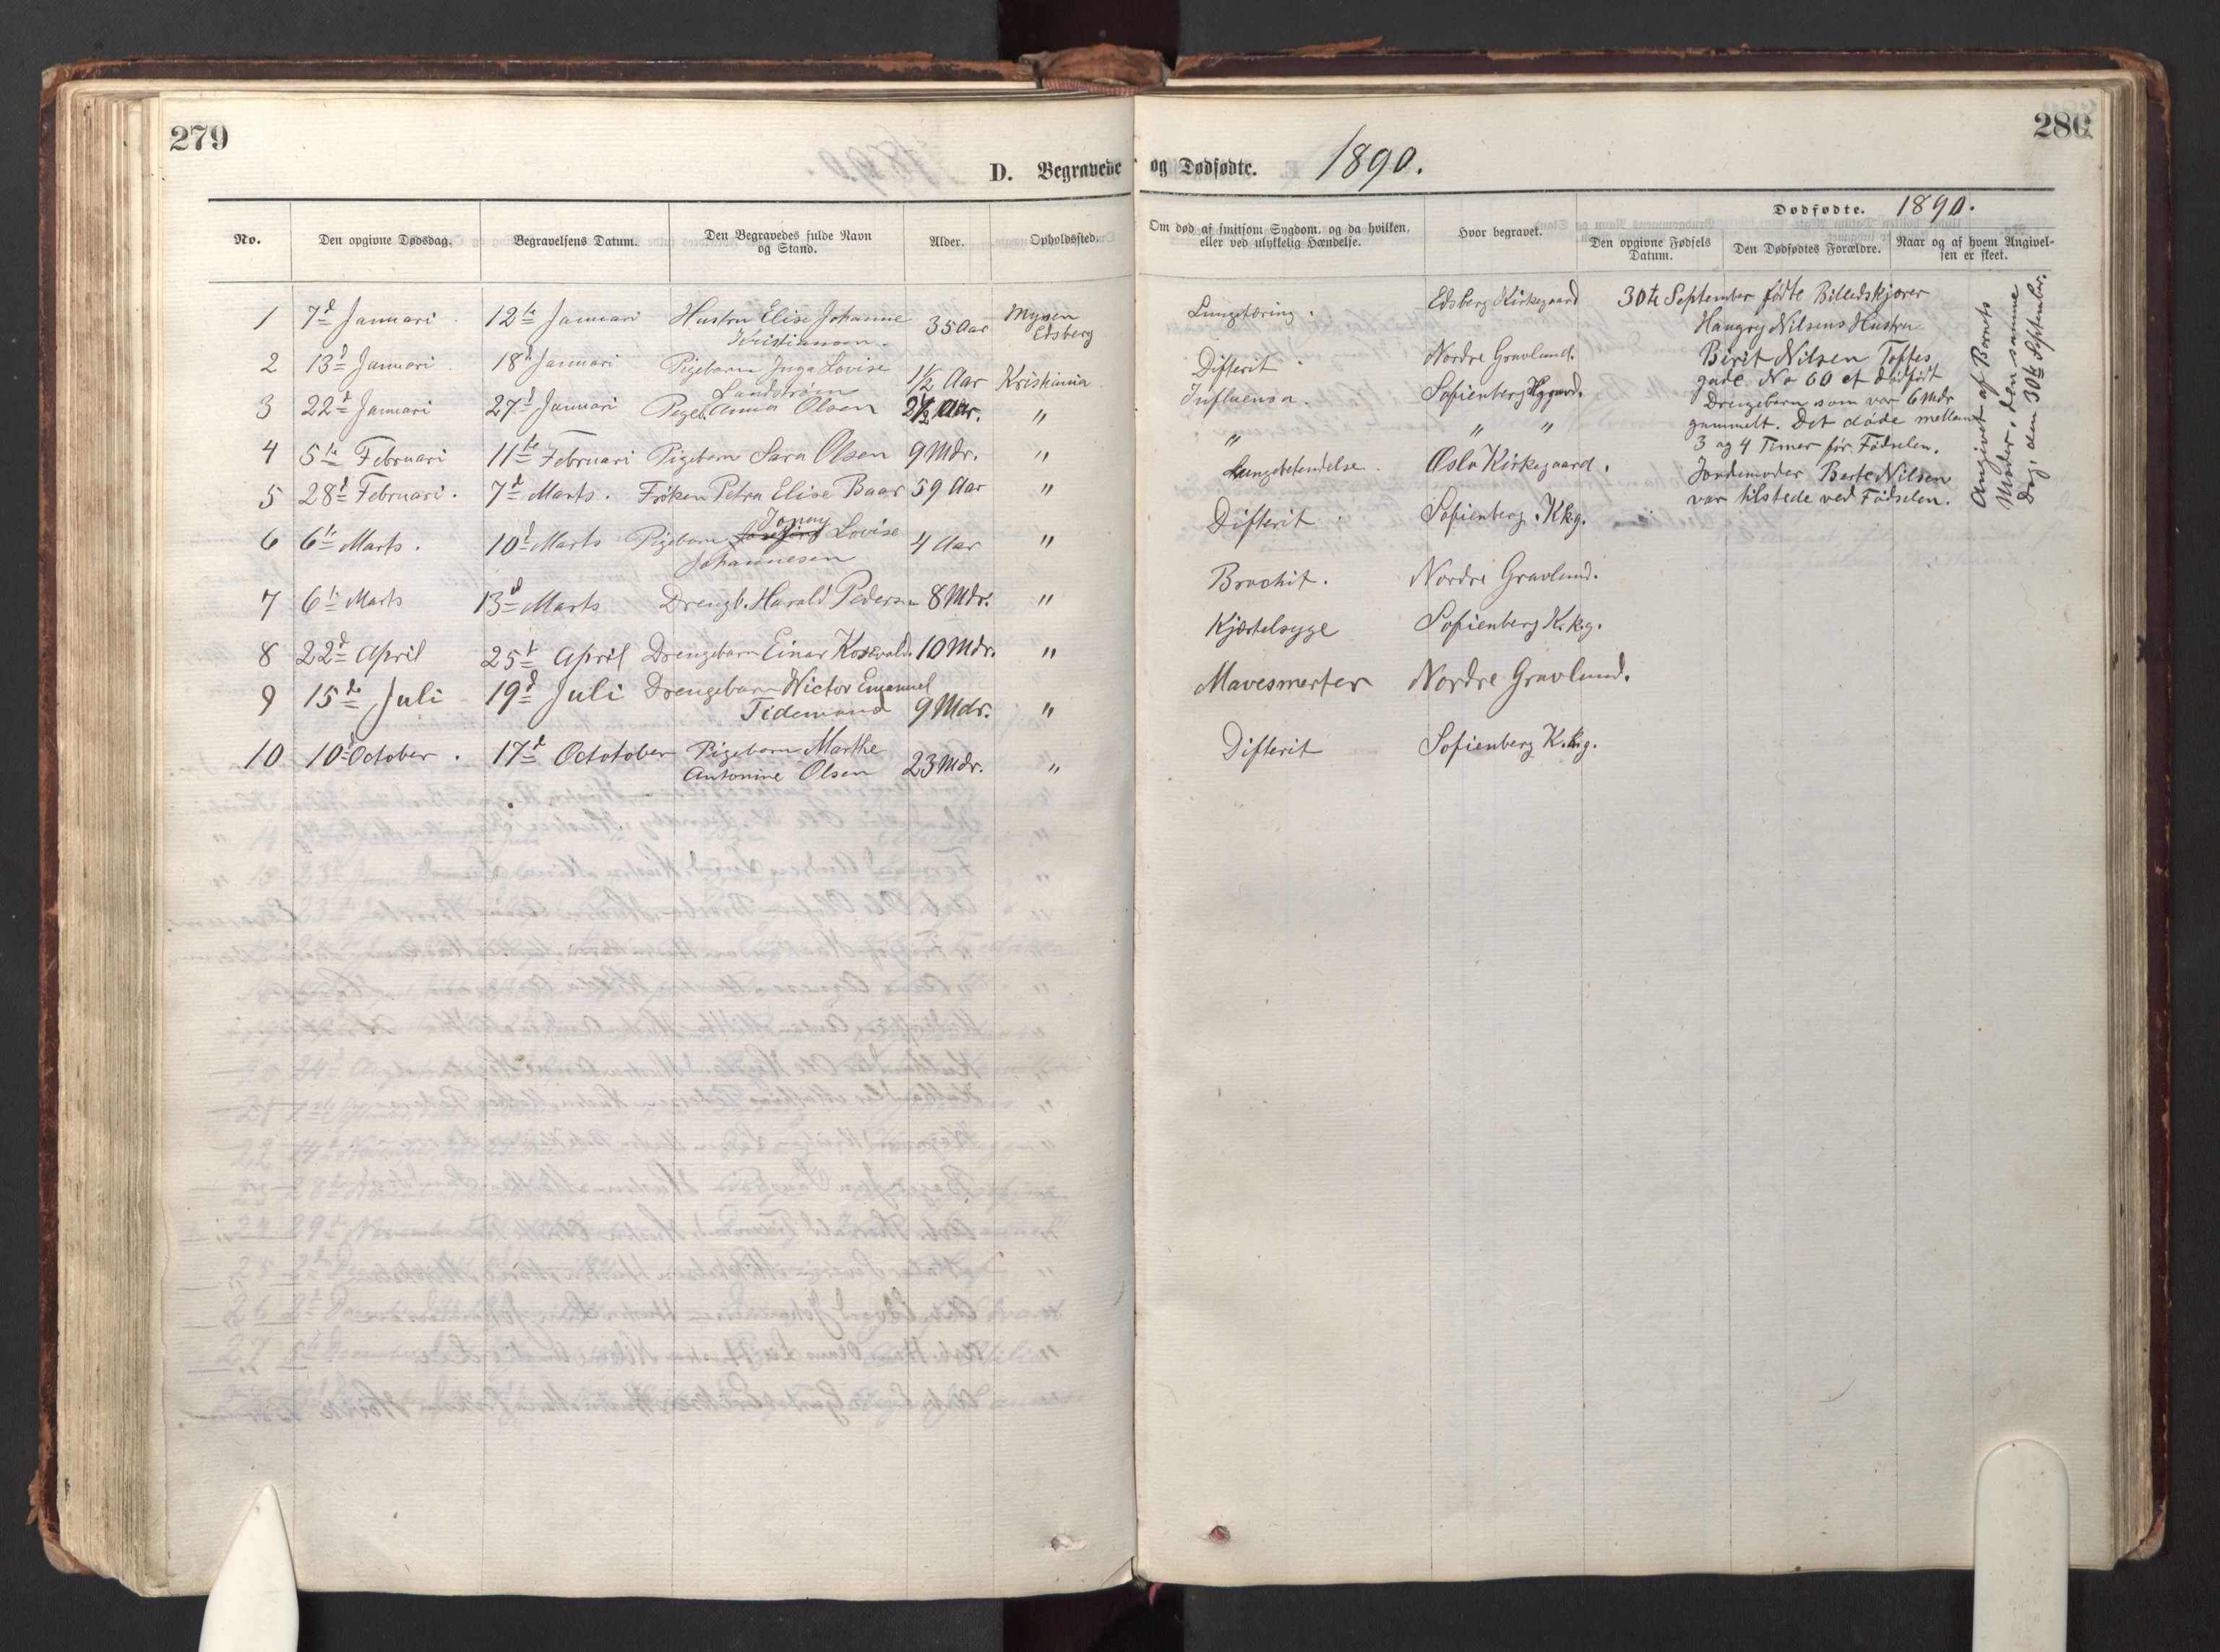 279
D. Begravede
No.
Den opgivne Dødsdag.
Begravelsens Datum.
Den Begravedes fulde Navn
og Stand.
Alder.
Opholdssted.
1 7d Januari 12te Januari Hustru Elise Johanne
Kristiansen. 35 Aar Mysen
Edsberg
2 13d Januari 18de Januari Pigebarn Inga Lovise
Landstrøm 1½ Aar Kristiania
3 22d Januari 27d Januari Pigeb. Anna Olsen 2½ Aar. "
4 5te Februari 11te Februari Pigebarn Sara Olsen 9 Mdr. "
5 28d Februari. 7d Marts. Frøken Petra Elise Baar 59 Aar "
6 6te Marts. 10d Marts Pigebarn Jonny Lovise
Johannesen 4 Aar "
7 6te Marts 13d Marts Drengb. Harald Pedersen 8 Mdr. "
8 22d April 25t April Drengebarn Einar Kosevold. 10 Mdr. "
9 15de Juli 19d Juli Drengebarn Wictor Emanuel
Tidemand 9 Mdr. "
10 10d October. 17d Octotober Pigebarn Marthe
Antonine Olsen 23 Mdr. "
280
og Dødfødte. 1890.
Om død af smitsom Sygdom, og da hvilken,
eller ved ulykkelig Hændelse.
Hvor begravet.
Dødfødte. 1890.
Den opgivne Fødsels
Datum.
Den Dødfødtes Forældre.
Naar og af hvem Angivel-
sen er skeet.
Lungetæring. Edsberg Kirkegaard
Difterit Nordre Gravlund.
Influensa. Sofienberg Kgaard.
" " "
Lungebetendelse. Oslo Kirkegaard.
Difterit Sofienberg. Kkg.
Brochit. Nordre Gravlund.
Kjertelsyge Sofienberg K.kg.
Mavesmerter Nordre Gravlund.
Difterit Sofienberg K.kg.
30te September fødte Billedskjærer
Haugry Nilsens Hustru
Birit Nilsen Toftes
gade No 60 et dødfødt
Drengebarn som var 6 Mdr
gammelt. Det døde mellem
3 og 4 Timer før Fødselen.
Jordemoder Berte Nilsen
var tilstede ved Fødselen.
Angivet af Barnets
Moder, den samme
Dag, den 30te September.